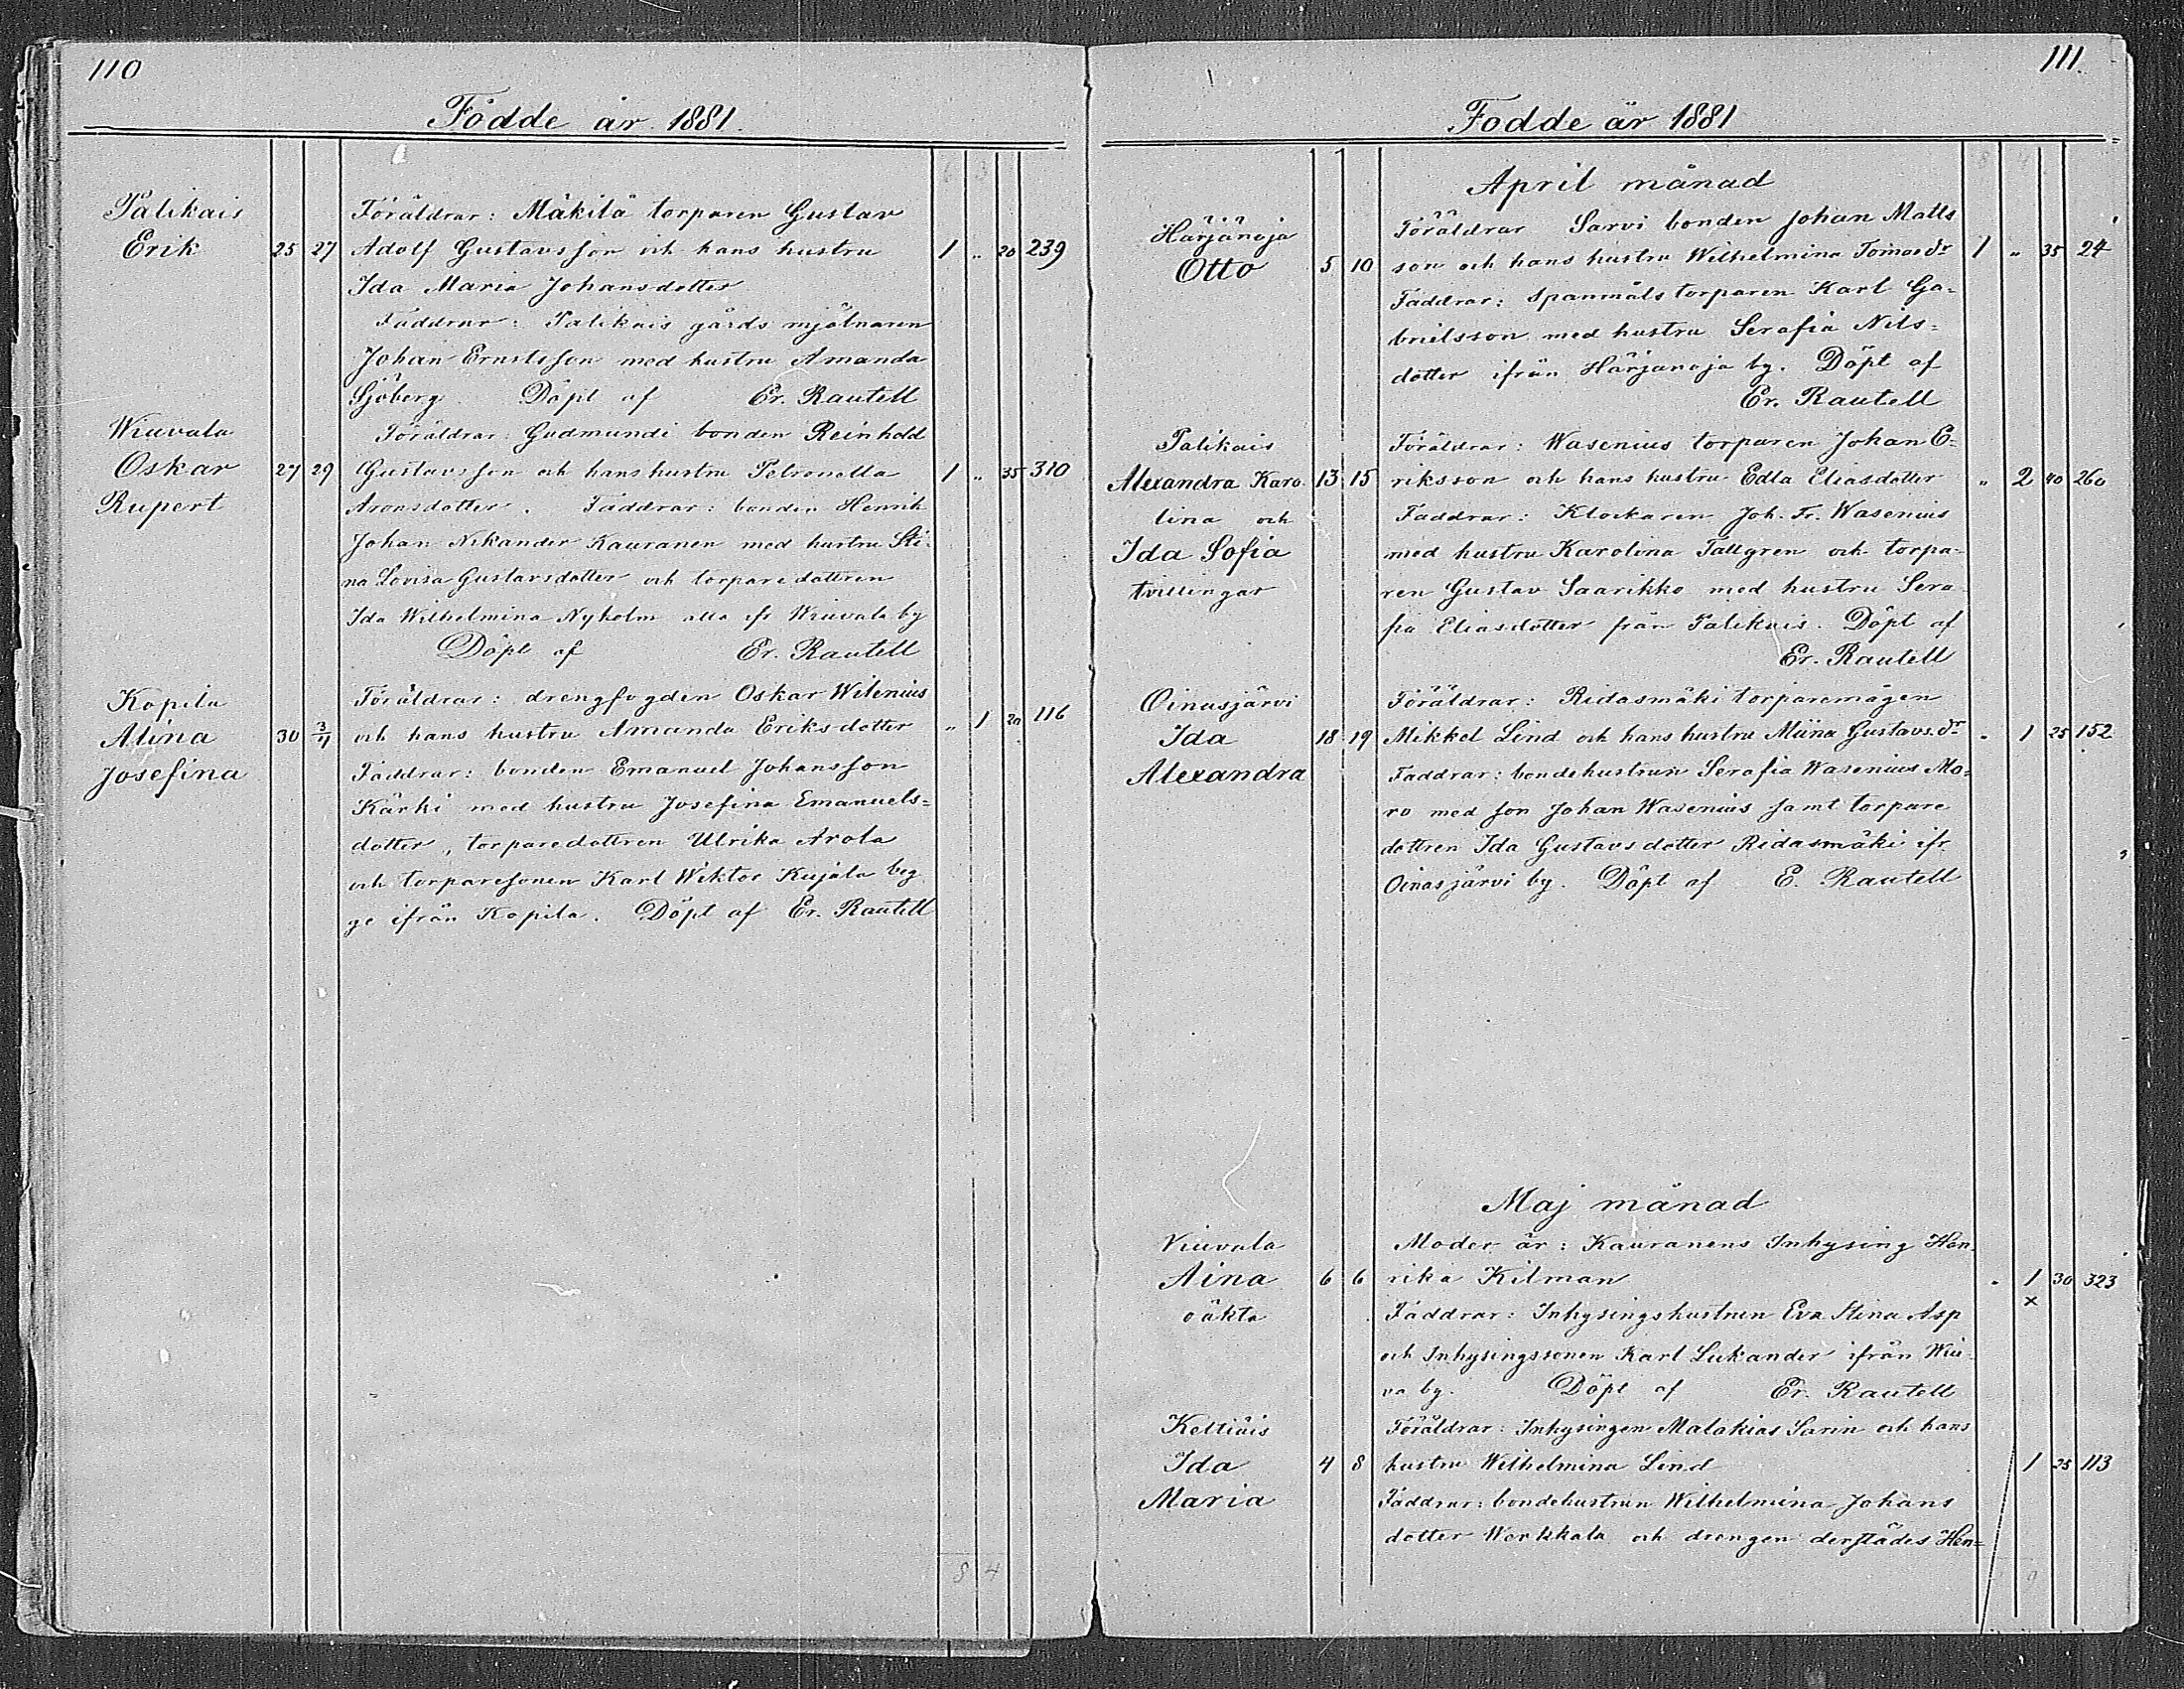 110
Födde år 1881.
6 3
Palikais
Föräldrar: Mäkilä torparen Gustav
Erik 25 27 Adolf Gustavsson och hans hustru 1 " 20 239
Ida Maria Johansdotter
Faddrar: Palikais gårds mjölnaren
Johan Ernstsson med hustru Amanda
Sjöberg Döpt af Er. Rautell
Wiuvala
Föräldrar: Gudmundi bonden Reinhold
Oskar 27 29 Gustavsson och hans hustru Petronella 1 " 35 310
Rupert Aronsdotter. Faddrar: bonden Henrik
Johan Nikander Kauranen med hustru Sti-
na Lovisa Gustavsdotter och torparedottren
Ida Wilhelmina Nyholm alla ifr Wiuvala by
Döpt af Er. Rautell
Kopila
Föräldrar: drengfogden Oskar Wilenius
Alina 30 3/4 och hans hustru Amanda Eriksdotter " 1 20 116
Josefina Faddrar: bonden Emanuel Johansson
Kärki med hustru Josefina Emanuels=
dotter, torparedottren Ulrika Arola
och torparesonen Karl Wiktor Kujala beg
ge ifrån Kopila. Döpt af Er. Rautell
8 4
111.
Fodde år 1881
8 4
April månad
Härjänoja
Föräldrar Sarvi bonden Johan Matts
Otto 5 10 son och hans hustru Wilhelmina Tomasdr 1 " 35 24
Faddrar: Spanmåls torparen Karl Ga=
brielsson med hustru Serafia Nils=
dotter ifrån Härjänoja by. Döpt af
Er. Rautell
Palikais
Föräldrar: Wasenius torparen Johan E=
Alexandra Karo- 13 15 riksson och hans hustru Edla Eliasdotter " 2 40 260
lina och Faddrar: Klockaren Joh. Fr. Wasenius
Ida Sofia med hustru Karolina Tallgren och torpa-
tvillingar ren Gustav Saarikko med hustru Sera
fia Eliasdotter från Palikais. Döpt af
Er. Rautell
Oinasjärvi
Föräldrar: Ridasmäki torparemågen
Ida 18 19 Mikkel Lind och hans hustru Miina Gustavsdr " 1 25 152
Alexandra Faddrar: bondehustrun Serafia Wasenius Mo=
ro med son Johan Wasenius samt torpare
dottren Ida Gustavsdotter Ridasmäki ifr
Oinasjärvi by. Döpt af E. Rautell
Maj månad
Viuvala
Moder är: Kauranens Inhysing Hen-
Aina 6 6 rika Kilman " 1 30 323
×
oäkta Faddrar: Inhysingshustrun Eva Stina Asp
och Inhysingssonen Karl Lukander ifrån Wiu-
va by. Döpt af Er. Rautell
Keltiäis
Föräldrar: Inhysingen Malakias Sarin och hans
Ida 4 8 hustru Wilhelmina Lind 1 25 113
Maria Faddrar: bondehustrun Wilhelmina Johans
dotter Werkkala och drengen derstädes Hen=